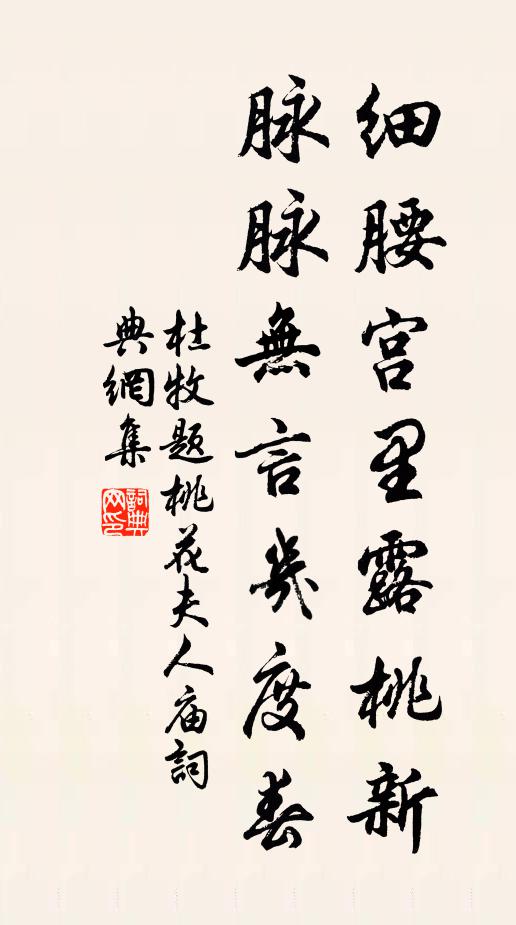 细腰宫里露桃新
脉脉無言幾度春
杜牧题桃花夫人庙詞
典網集
詞典網印